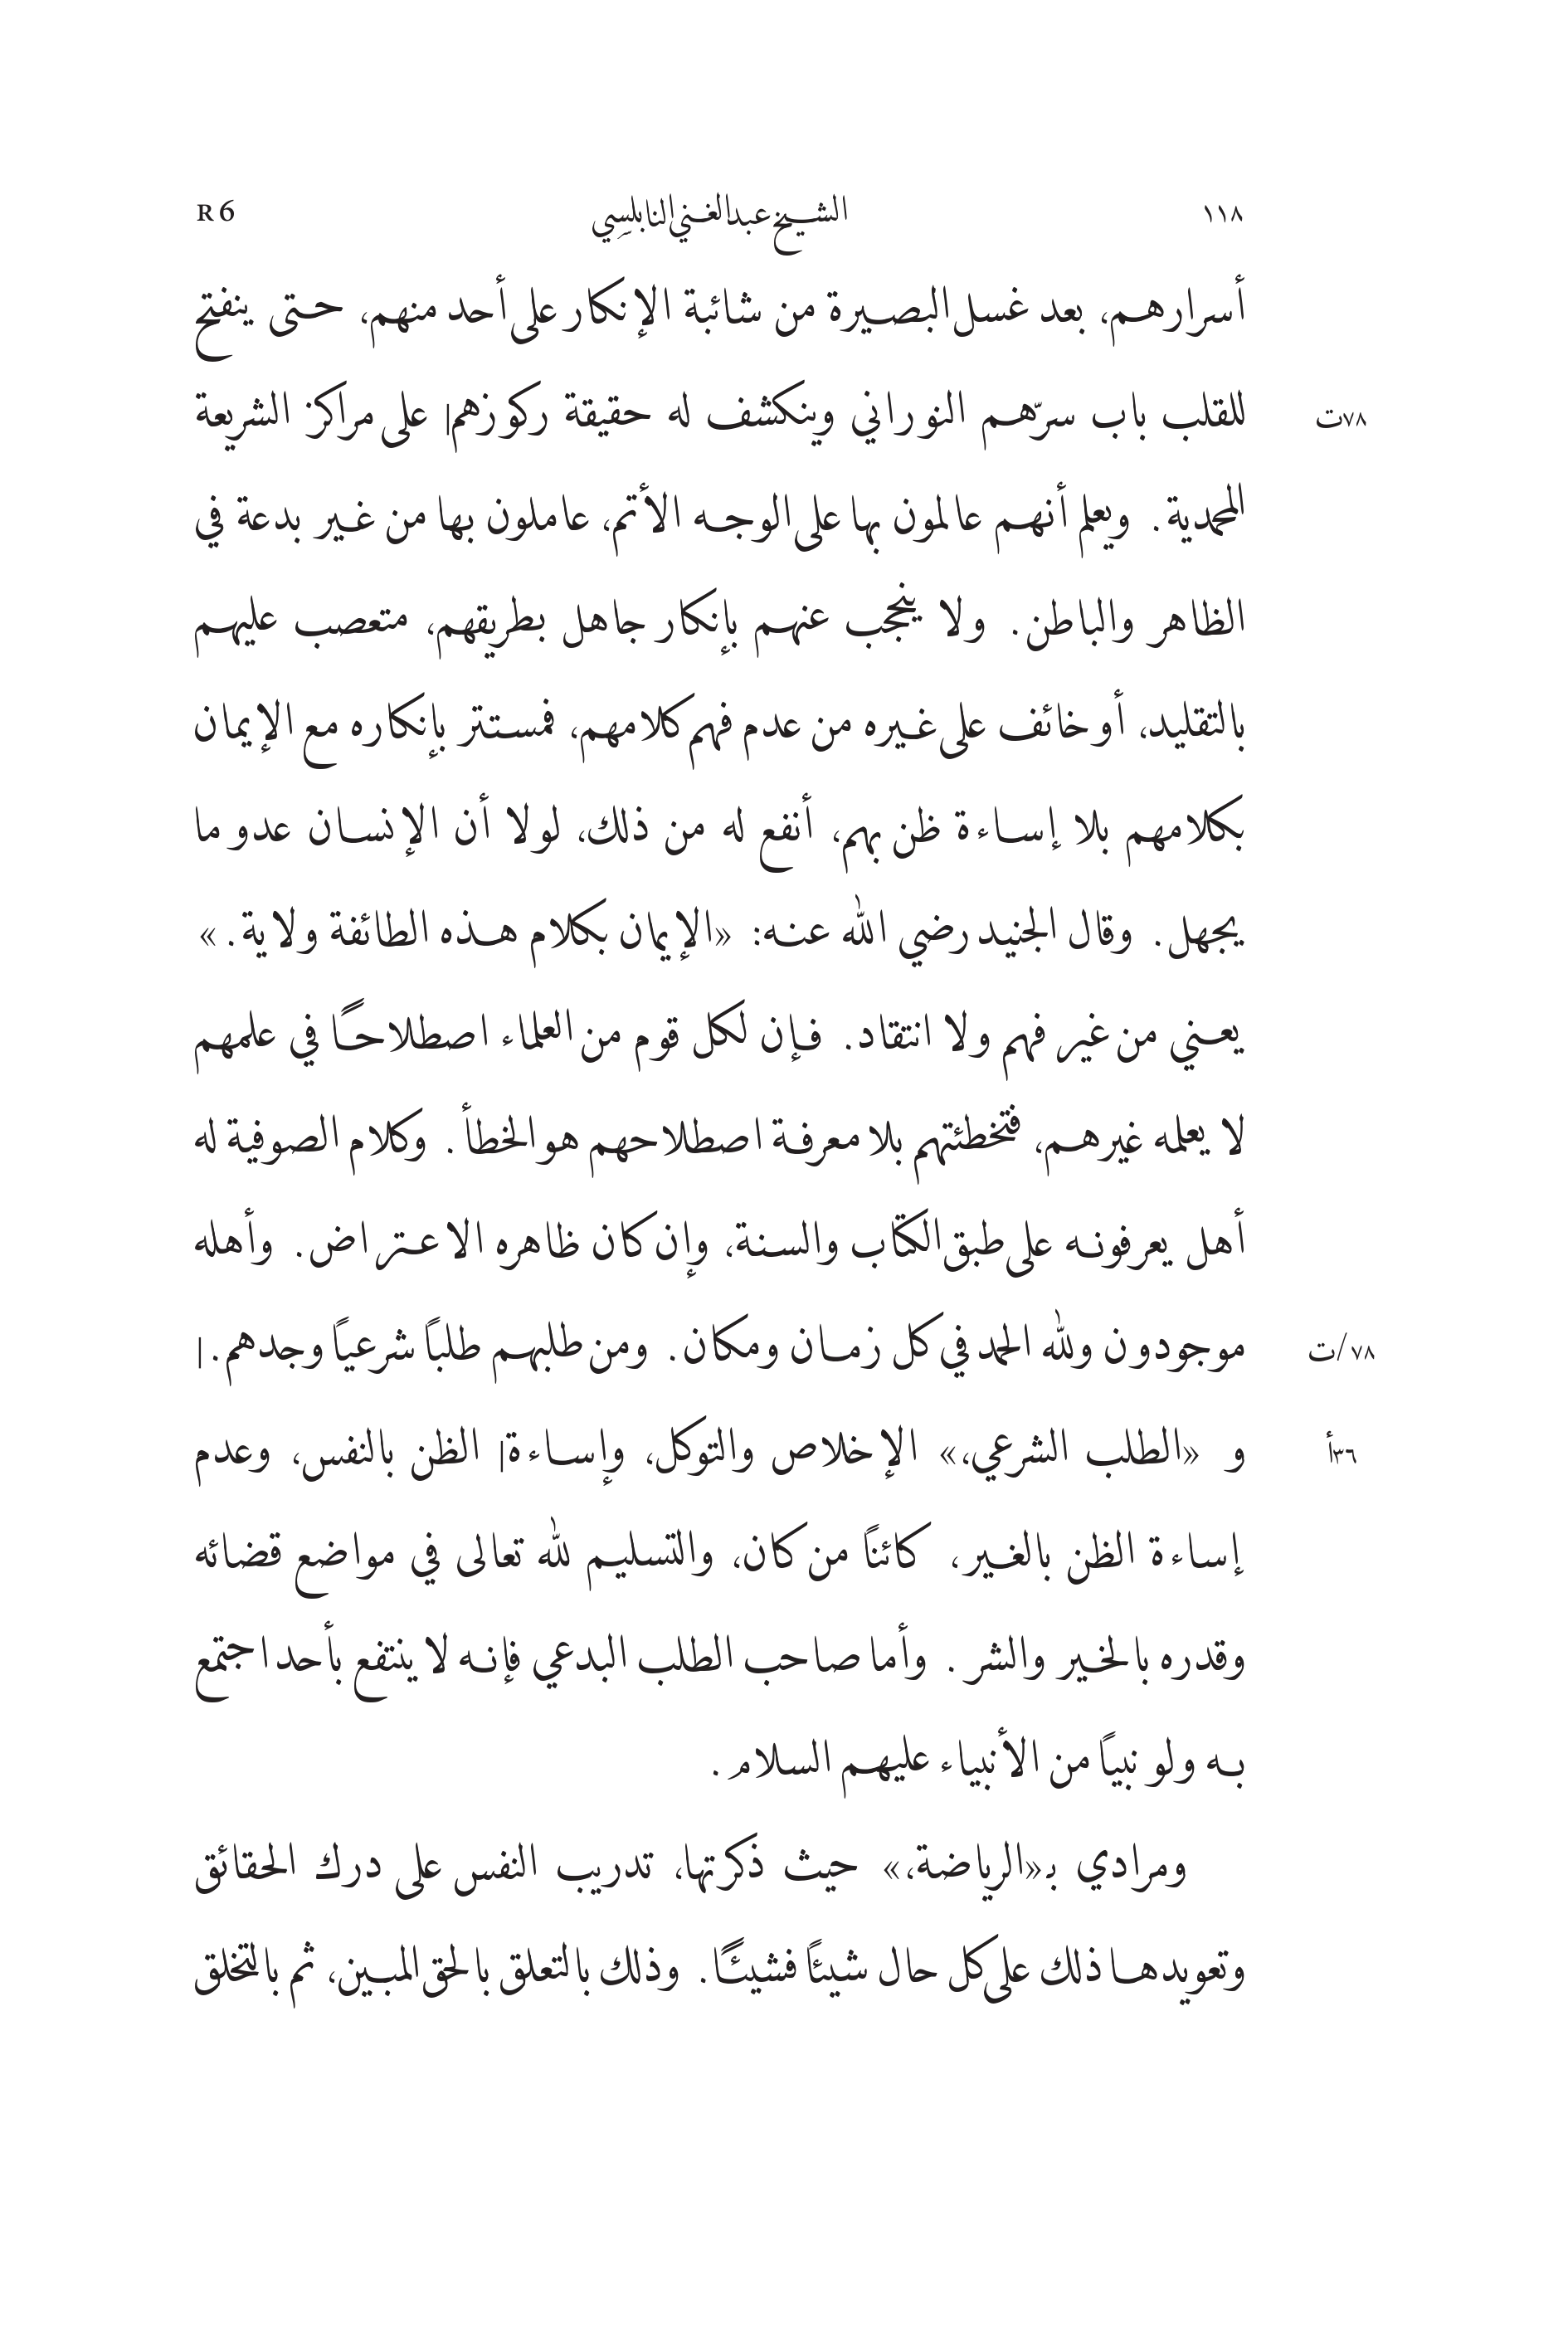 ١١٨ الشيخ عبد الغني النابلسِي R 6
أسرارهم، بعد غسل البصيرة من شائبة الإنكار على أحد منهم، حتى ينفتح
للقلب باب سرّهم النوراني وينكشف له حقيقة ركوزهم| على مراكز الشريعة
٧٨ت
المحمدية. ويعلم أنهم عالمون بها على الوجه الأتم، عاملون بها من غير بدعة في
الظاهر والباطن. ولا ينحجب عنهم بإنكار جاهل بطريقهم، متعصب عليهم
بالتقليد، أو خائف على غيره من عدم فهم كلامهم، فمستتر بإنكاره مع الإيمان
بكلامهم بلا إساءة ظن بهم، أنفع له من ذلك، لولا أن الإنسان عدو ما
يجهل. وقال الجنيد رضي الله عنه: «الإيمان بكلام هذه الطائفة ولاية.»
يعني من غير فهم ولا انتقاد. فإن لكل قوم من العلماء اصطلاحًا في علمهم
لا يعلمه غيرهم، فتخطئتهم بلا معرفة اصطلاحهم هو الخطأ. وكلام الصوفية له
أهل يعرفونه على طبق الكتاب والسنة، وإن كان ظاهره الاعتراض. وأهله
موجودون ولله الحمد في كل زمان ومكان. ومن طلبهم طلبًا شرعيًا وجدهم.|
٧٨/ت
و «الطلب الشرعي،» الإخلاص والتوكل، وإساءة| الظن بالنفس، وعدم
٣٦أ
إساءة الظن بالغير، كائنًا من كان، والتسليم لله تعالى في مواضع قضائه
وقدره بالخير والشر. وأما صاحب الطلب البدعي فإنه لا ينتفع بأحد اجتمع
به ولو نبيًا من الأنبياء عليهم السلام.
ومرادي بـ«الرياضة،» حيث ذكرتها، تدريب النفس على درك الحقائق
وتعويدها ذلك على كل حال شيئًا فشيئًا. وذلك بالتعلق بالحق المبين، ثم بالتخلق